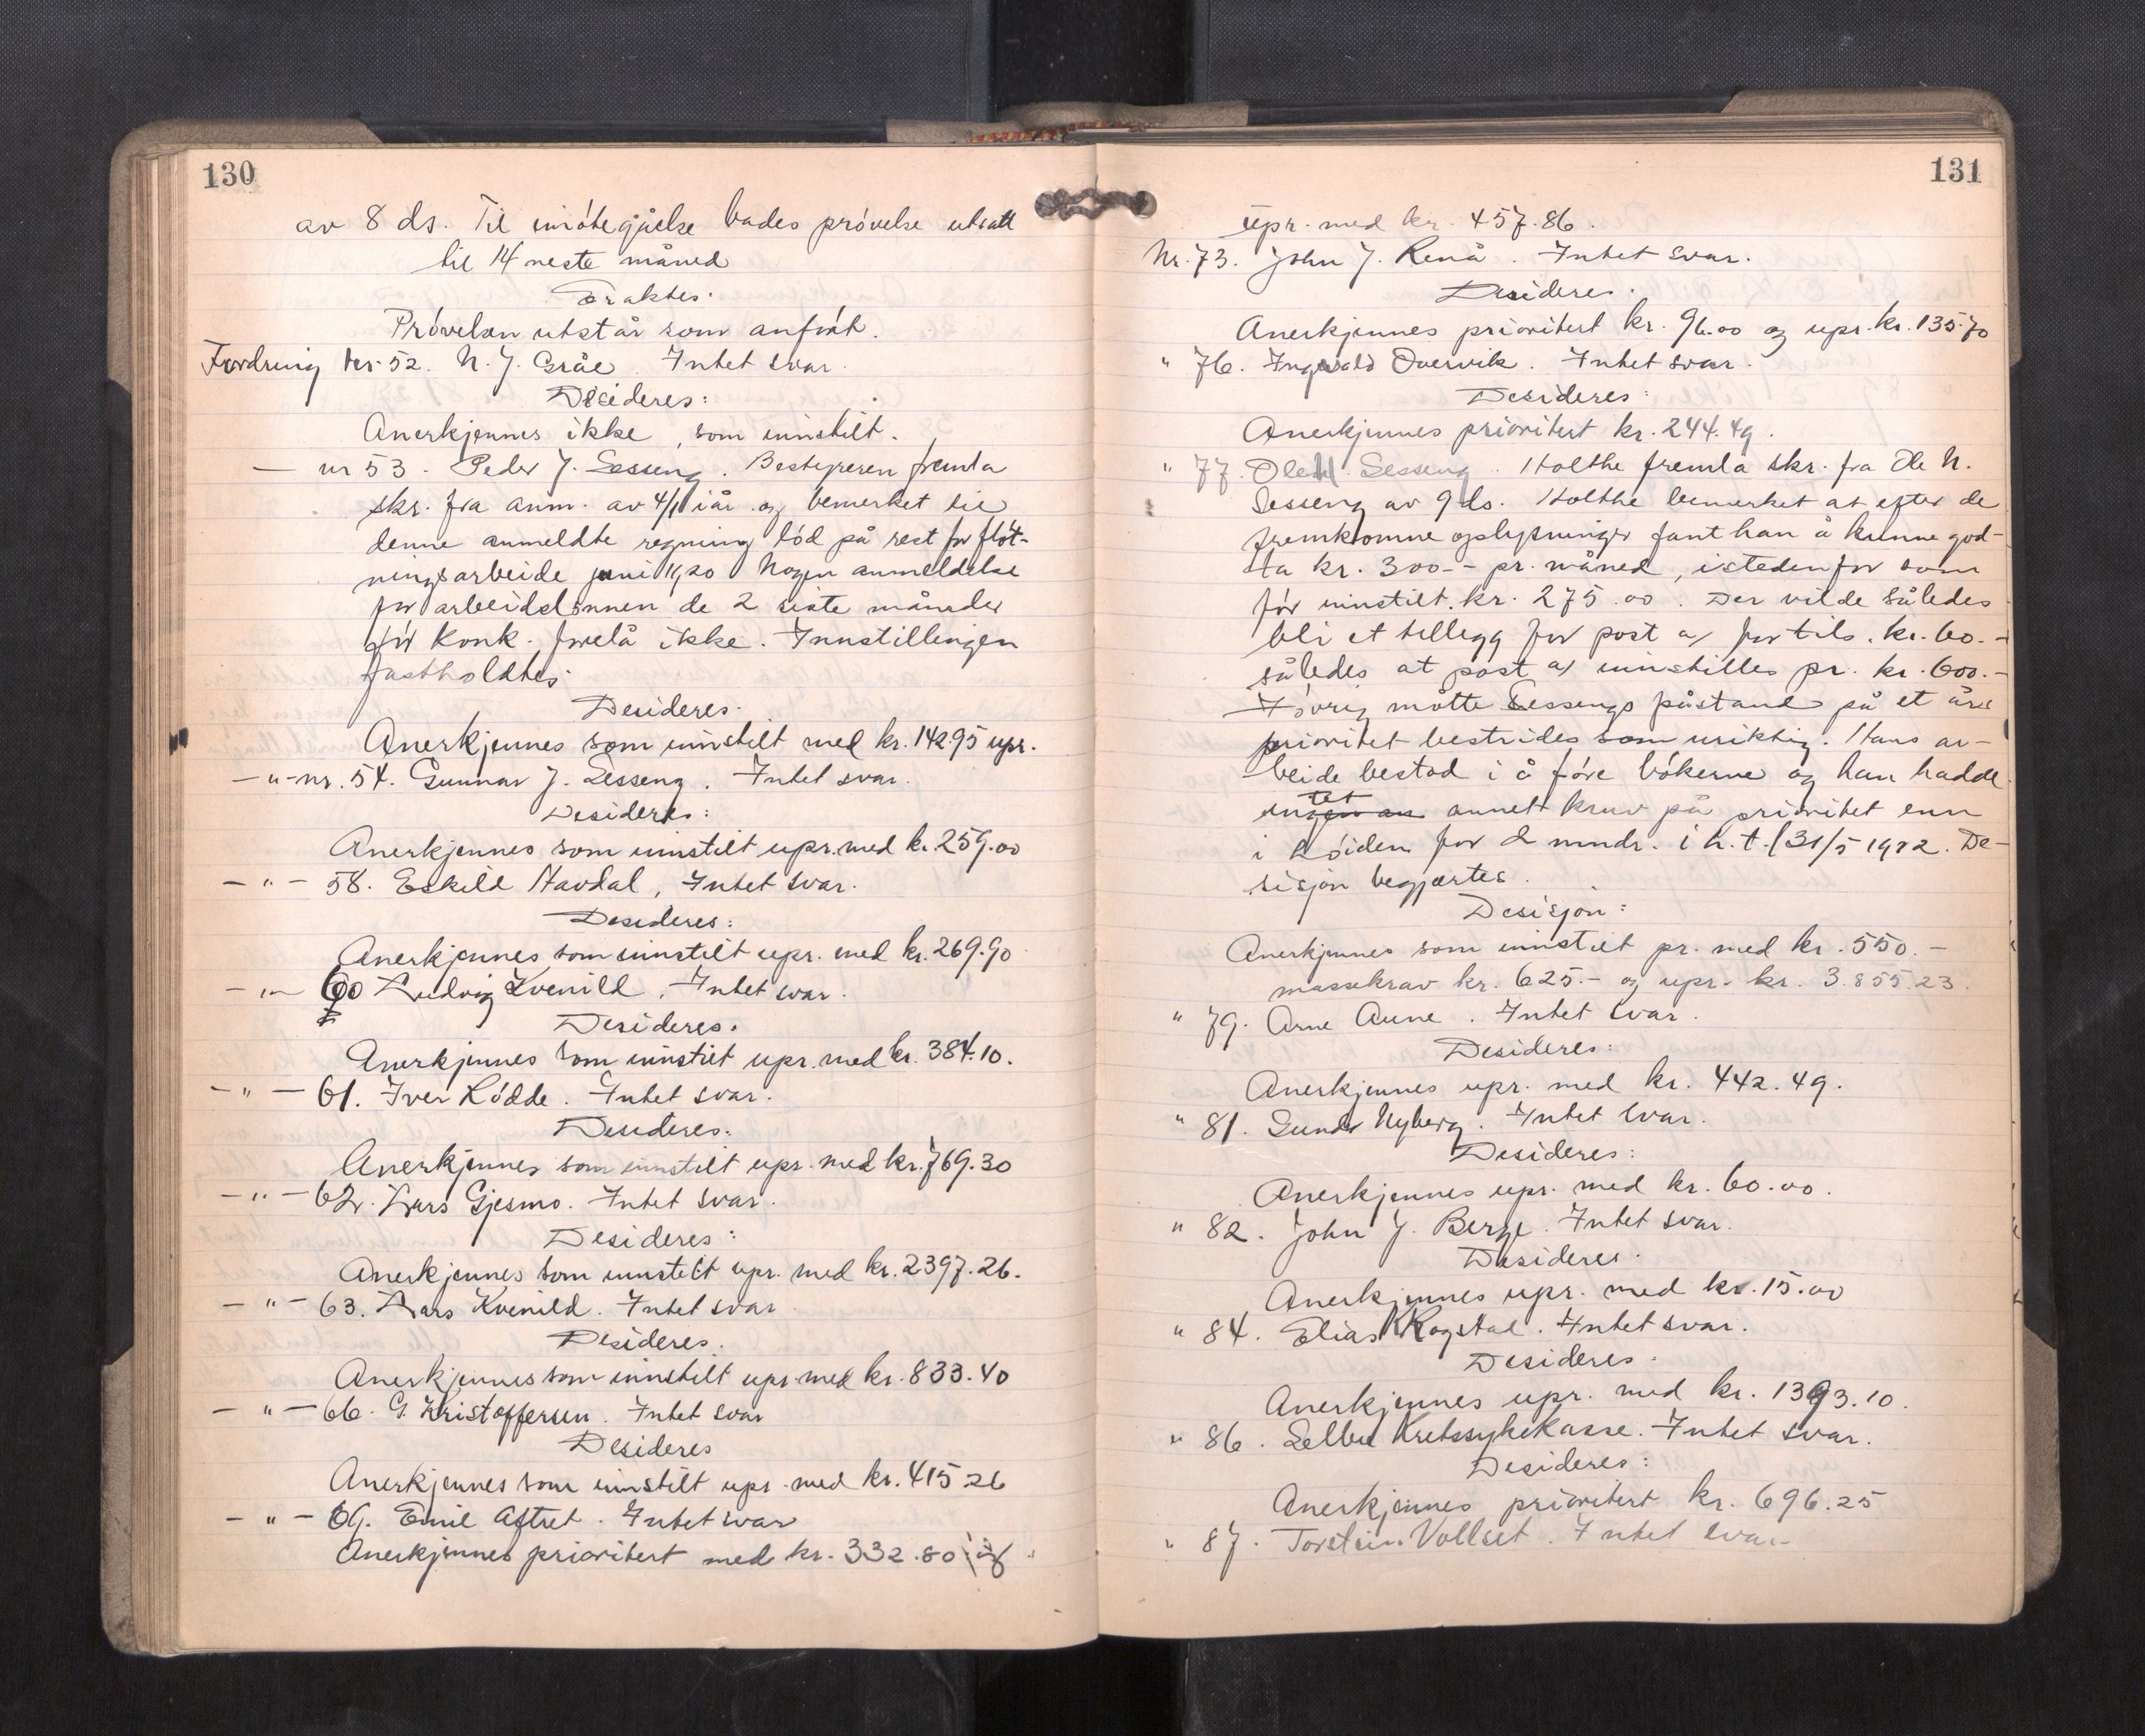 130
av 8 ds. Til imøtegåelse bades prøvelse utsatt
til 14 neste måned
Traktes:
Prøvelsen utstår som anført.
Fordring nr 52. N. J. Gråe. Intet svar.
Desideres:
Anerkjennes ikke, som innstilt.
— nr 53 - Peder J. Sesseng. Bestyreren fremla
skr. fra anm. av 4/1 i år og bemerket til
denne anmeldte regning lød på rest for fløt-
ningsarbeide juni 1920 Nogen anmeldelse
for arbeidslønnen de 2 siste måneder
før konk. forelå ikke. Innstillingen
fastholdtes.
Desideres.
Anerkjennes som innstilt med kr. 142.95 upr.
— " - nr. 54. Gunnar J. Sesseng. Intet svar.
Desideres:
Anerkjennes som innstilt upr. med k. 259.00
— " — 58. Eskild Havdal, Intet svar.
Desideres:
Anerkjennes som innstilt upr. med kr. 269.90
— " — 60 Ludvig Kvenild. Intet svar.
Desideres.
Anerkjennes som innstilt upr. med kr. 384.10.
— " — 61. Iver Lødde. Intet svar.
Desideres.
Anerkjennes som innstilt upr. med kr. 769.30
— " — 62. Lars Gjesmo. Intet svar.
Desideres:
Anerkjennes som innstilt upr. med kr. 2397.26.
— " — 63. Lars Kvenild. Intet svar
Desideres.
Anerkjennes som innstilt upr. med kr. 833.40
— " — 66. G. Kristoffersen. Intet svar
Desideres
Anerkjennes som innstilt upr. med kr. 415 26
— " — 69. Emil Aftret. Intet svar
Anerkjennes prioritert med kr. 332.80 og
131
upr. med kr. 457.86.
Nr. 73. John J. Renå. Intet svar.
Desideres.
Anerkjennes prioritert kr. 96.00 og upr. kr. 135.70
" 76. Ingvald Overvik. Intet svar.
Desideres:
Anerkjennes prioritert kr. 244.49.
" 77. Ole N. Sesseng. Holthe fremla skr. fra Ole N.
Sesseng av 9 ds. Holthe bemerket at efter de
fremkomne oplysninger fant han å kunne god-
ta kr. 300.- pr. måned, istedenfor som
før innstilt kr. 275.00. Der vilde således
bli et tillegg for post a) for tils. kr. 60.-
således at post a) innstilles pr. kr. 600.-
Iøvrig måtte Sessengs påstand på et års
prioritet bestrides som uriktig. Hans ar-
beide bestod i å føre bøkerne og han hadde
intet annet krav på prioritet enn
i høiden for 2 mndr. i h. t. l 31/5 1922. De-
sisjon begjærtes.
Desisjon:
Anerkjennes som innstilt pr. med kr. 550.-
massekrav kr. 625.- og upr. kr. 3.855.23.
" 79. Arne Aune. Intet svar.
Desideres:
Anerkjennes upr. med kr. 442.49.
" 81. Gunder Nyberg. Intet svar.
Desideres:
Anerkjennes upr. med kr. 60.00.
" 82. John J. Berge. Intet svar.
Desideres.
Anerkjennes upr. med kr. 15.00
" 84. Elias Kogstad. Intet svar.
Desideres.
Anerkjennes upr. med kr. 1393.10.
" 86. Selbu Kretssykekasse. Intet svar.
Desideres:
Anerkjennes prioritert kr. 696.25
" 87. Torstein Vollset. Intet svar